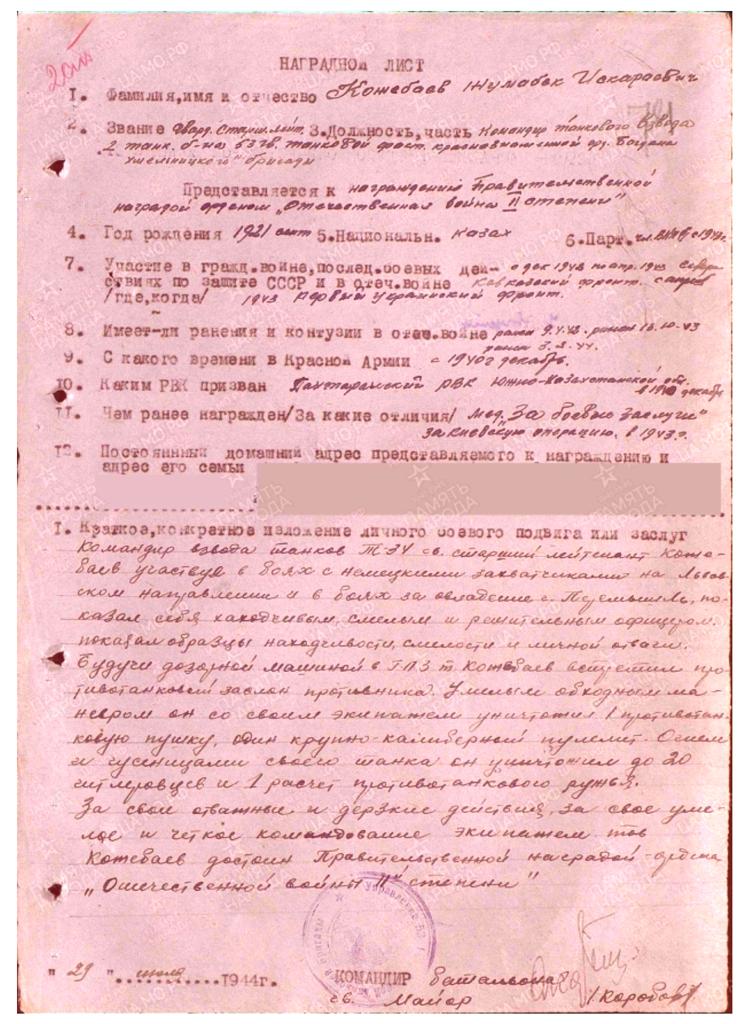 НАГРАДНОЙ ЛИСТ
1. Фамилия,имя и отчество Кожебаев Жумабек Искараевич
2. Звание Гвард. Старш. лейт. 3.Должность,часть Командир танкового взвода
2 танк. б-на 63 гв. танковой краснознаменной орд. Богдана
Хмельницкого" бригады
Представляется к награждению Правительственной
наградой орденом „Отечественная война II степени"
4. Год рождения 1921 5.Национальн. казах 6.Парт. чл. ВКП(б) с 1942г.
7. Участие в гражд.войне,послед.боевых дей- с дек 1942 по апр. 1943 Северо
ствиях по защите СССР и в отеч.войне Кавказский фронт. с
/где,когда/ 1943 Первый Украинский фронт.
8. Имеет-ли ранения и контузии в отеч.войне ранен 16.10.43
ранен
9. С какого времени в Красной Армии с 1940г декабрь.
10. Каким РВК призван Пахтаральский РВК Южно-Казахстанской обл.
в 1940 декабрь
11. Чем ранее награжден/За какие отличия/ Мед. „За боевые заслуги"
За киевскую операцию. в 1943г.
12. Постоянный домашний адрес представляемого к награждению и
адрес его семьи
I. Краткое,конкретное изложение личного боевого подвига или заслуг
Командир взвода танков Т-34 гв. старший лейтенант Коже-
баев участвуя в боях с немецкими захватчиками на Львов
ском направлении и в боях за овладение г. Перемышль, по-
казал себя находчивым, смелым и решительным офицером.
показал образцы находчивости, смелости и личной отваги.
Будучи дозорной машиной в ГПЗ т. Кожебаев встретил про
тивотанковый заслон противника. Умелым обходным ма-
невром он со своим экипажем уничтожил 1 противотан
ковую пушку, один крупно-калиберной пулемет. Огнем
и гусеницами своего танка он уничтожил до 20
гитлеровцев и 1 расчет противотанкового ружья.
За свои отважные и дерзкие действия, за свое уме-
лое и четкое командование экипажем тов
Кожебаев достоин Правительственной наградой-ордена
„Отечественной войны II степени"
" 29 " июля 1944г. КОМАНДИР батальона
гв. Майор /Коробов/